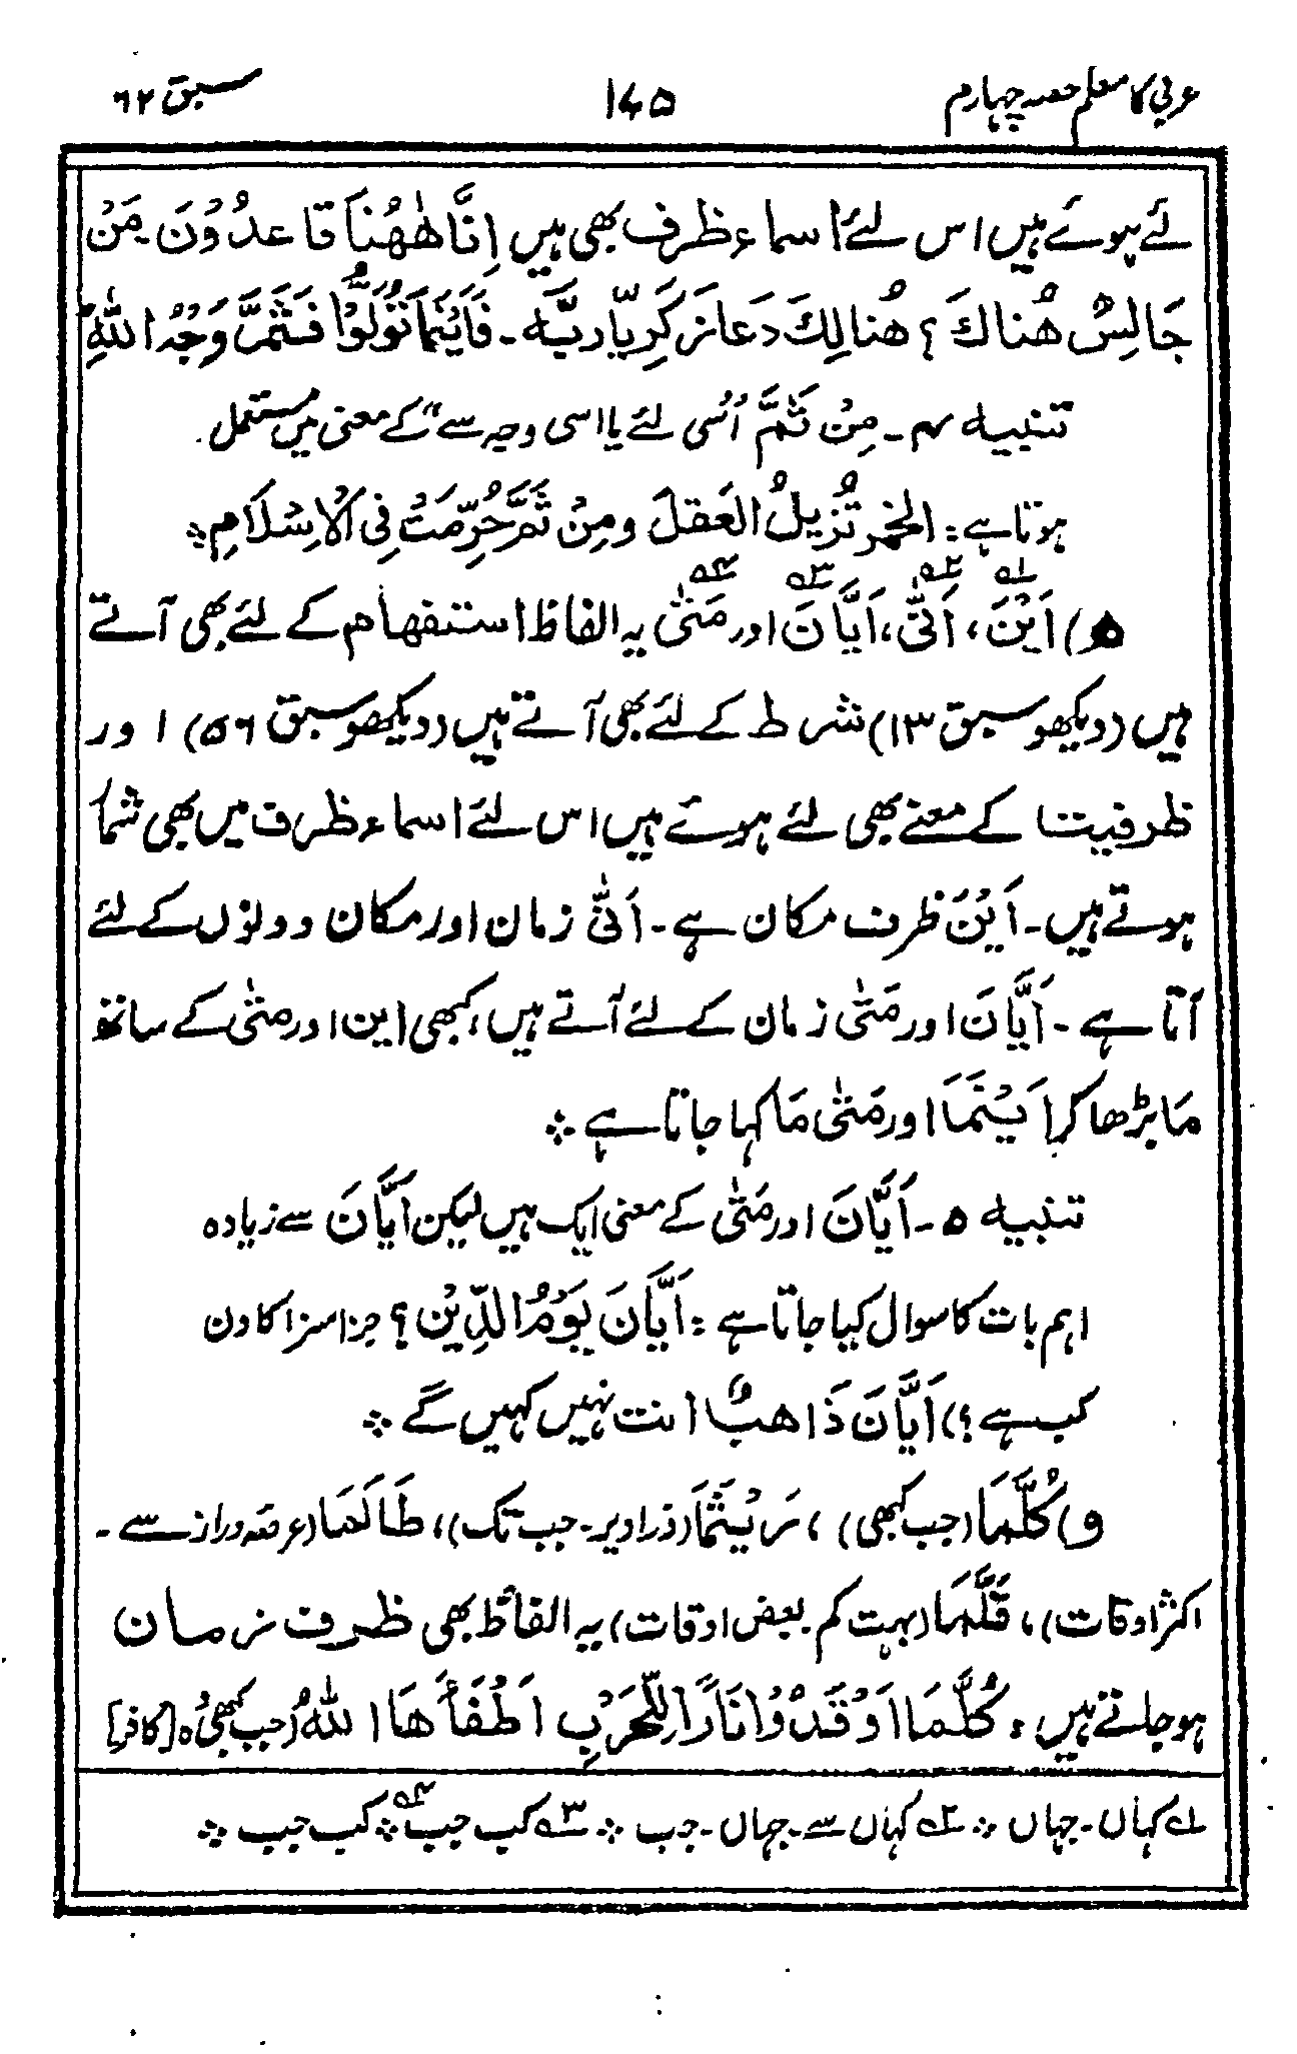 عربی کا معلم حصہ چہارم ۱۷۵ سبق ۶۲
لئے ہوئے ہیں اس لئے اسماء ظرف بھی ہیں اِنَّا هٰهُنَا قَاعِدُوْنَ ۔ مَنْ
جَالِسٌ هُنَاكَ ؟ هُنَالِكَ دَعَا زَكَرِيَّا رَبَّهٗ ۔ فَاَيْنَمَا تُوَلُّوْا فَثَمَّ وَجْهُ اللّٰهِ
تنبیہ ۴ ۔ مِنْ ثَمَّ اُسی لئے یا اسی وجہ سے" کے معنی میں مستعمل
ہوتا ہے : الخمر تُزِيلُ العَقلَ ومِنْ ثَمَّ حُرِّمَتْ فِی الْاِسْلَامِ ⁘
۵) اَيْنَ۱ ، اَنّٰى۲ ، اَيَّانَ۳ اور مَتٰى۴ یہ الفاظ استفہام کے لئے بھی آتے
ہیں (دیکھو سبق ۱۳) شرط کے لئے بھی آتے ہیں (دیکھو سبق ۵۶) اور
ظرفیت کے معنے بھی لئے ہوئے ہیں اس لئے اسماء ظرف میں بھی شمار
ہوتے ہیں ۔ اَيْنَ ظرف مکان ہے ۔ اَنّٰى زمان اور مکان دونوں کے لئے
آتا ہے ۔ اَيَّانَ اور مَتٰى زمان کے لئے آتے ہیں ، کبھی این اور متٰی کے ساتھ
مَا بڑھا کر اَيْنَمَا اور مَتٰى مَا کہا جاتا ہے ⁘
تنبیہ ۵ ۔ اَيَّانَ اور مَتٰى کے معنی ایک ہیں لیکن اَيَّانَ سے زیادہ
اہم بات کا سوال کیا جاتا ہے : اَيَّانَ يَوْمُ الدِّيْنِ ؟ جزا سزا کا دن
کب ہے ؟) اَيَّانَ ذَاهِبٌ انت نہیں کہیں گے ⁘
و) كُلَّمَا (جب کبھی) ، رَيْثَمَا (ذرا دیر ۔ جب تک) ، طَالَمَا (عرصہ دراز سے ۔
اکثر اوقات) ، قَلَّمَا (بہت کم بعض اوقات) یہ الفاظ بھی ظرف زمان
ہو جاتے ہیں : كُلَّمَا اَوْقَدُوْا نَارًا لِّلْحَرْبِ اَطْفَأَهَا اللّٰهُ (جب کبھی وہ [کافر]
۱ کہاں ۔ جہاں ⁘ ۲ کہاں سے ۔ جہاں ۔ جب ⁘ ۳ کب جب ⁘ ۴ کب جب ⁘